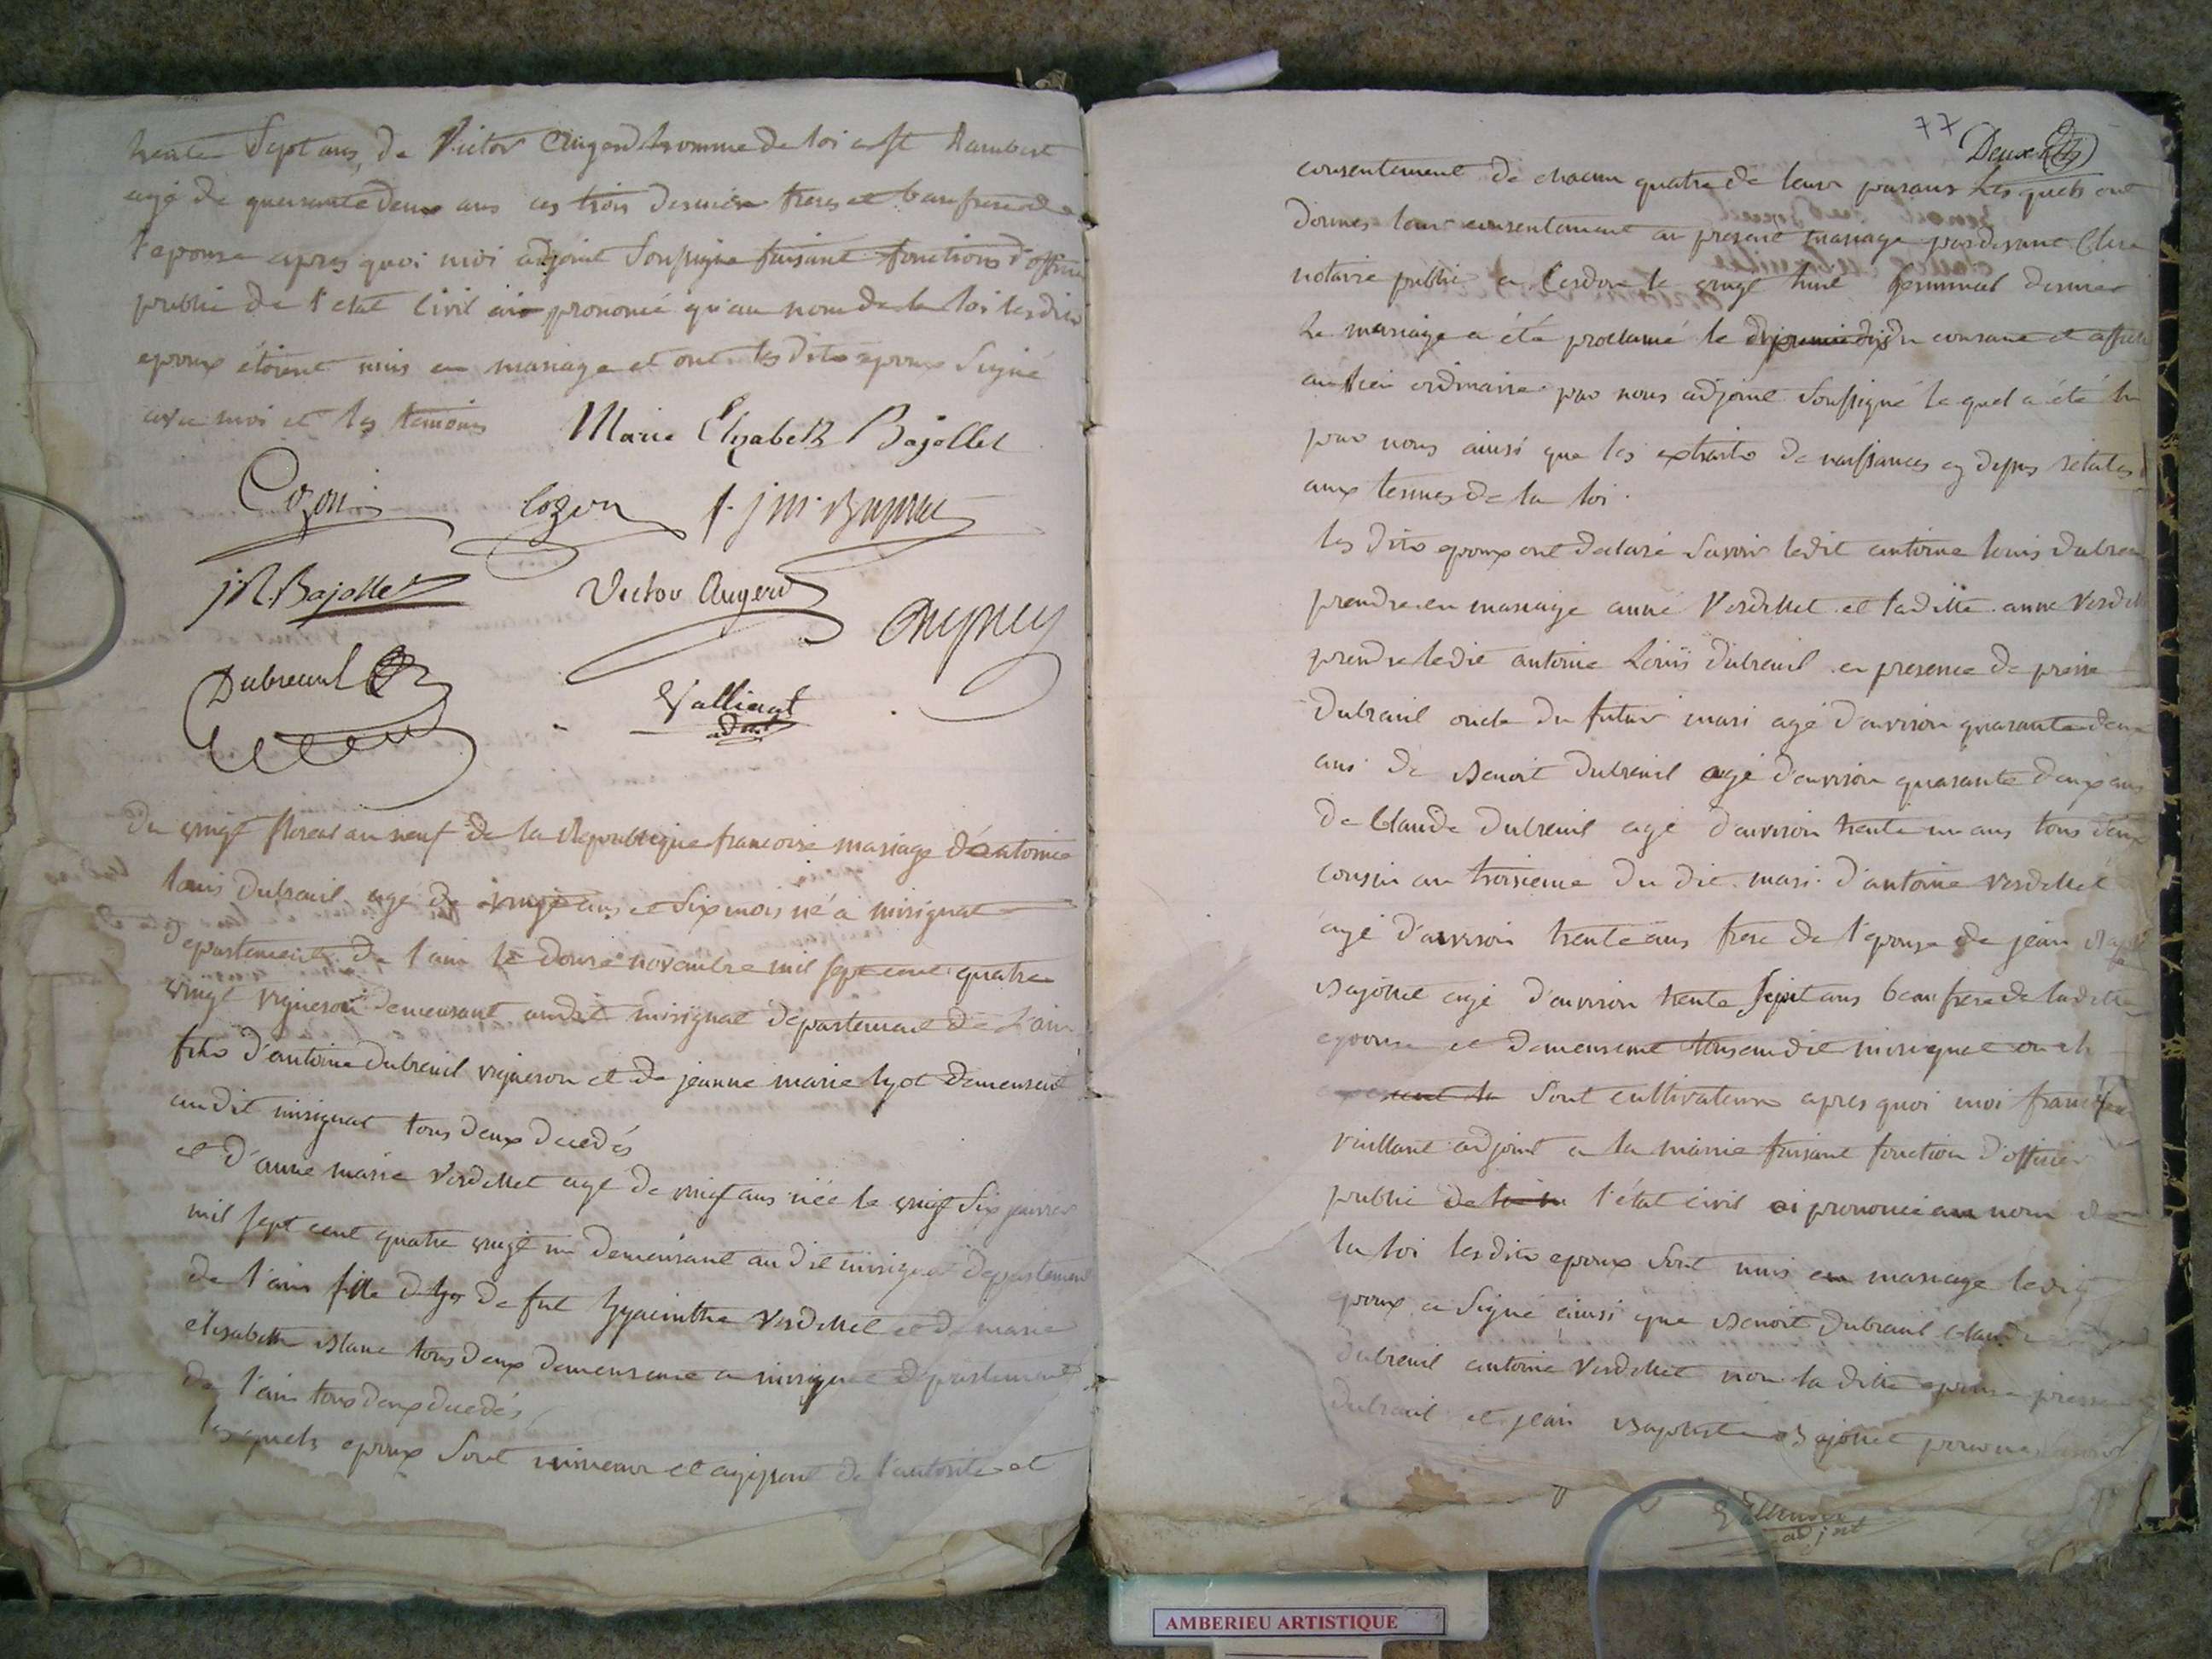 trente Sept ans, de Victor Augerd homme de loi a st Rambert
agé de quarante deux ans ces trois dernier freres et beaufrere de
l'epouse apres quoi moi adjoint Soussigné faisant fonctions d'officier
public de l'etat Civil ai prononcé qu'au nom de la loi lesdits
epoux étoient unis en mariage et ont les dits epoux Signé
avec moi et les temoins
Marie Elysabeth Bajollet
Cozon
cozon
j.R. Bajollet
Victor Augerd
Dupuy
Dubreuil
Vallient
adjt
du vingt floreal an neuf de la Republique francoise mariage d'antoine
louis Dubreuil agé de vingt ans et Six mois né a mirignat
departement de l'ain le douze novembre mil sept cent quatre
vingt vigneron demeurant audit mirignat département de L'ain
fils d'antoine Dubreuil vigneron et de jeanne marie hyot demeurant
audit mirignat tous deux decedés
et d'anne marie Verdellet agé de vingt ans née le vingt Six janvier
mil sept cent quatre vingt un demeurant au dit mirignat departement
de l'ain fille de fut hyacinthe Verdellet et de marie
elisabeth Blanc tous deux demeurant a mirignat département
de l'ain tous deux decedés,
lesquels epoux Sont mineurs et agissant de l'autorité et
77
Deux
consentement de chacun quatre de leurs parans Lesquels ont
donnés leur consentement au present mariage pardevant
notaire public a Cerdon le vingt huit germinal dernier
Le mariage a été proclamé le du courant et affiché
au lieu ordinaire par nous adjoint Soussigné lequel a été lu
par nous ainsi que les extraits de naissances cy dessus relatés
aux termes de la loi.
les dits epoux ont declaré Savoir ledit antoine louis dubreuil
prendre en mariage anne Verdellet et ladite anne Verdellet
prendre ledit antoine Louis dubreuil en presence de pierre
Dubreuil oncle du futur mari agé d'environ quarante deux
ans de Benoit Dubreuil agé d'environ quarante deux ans
de Claude Dubreuil agé d'environ trente un ans tous deux
cousin au troisieme du dit mari d'antoine Verdellet
agé d'environ trente ans frere de l'epouse de jean Bapt
Bajollet agé d'environ trente Sept ans beaufrere de ladite
epouse et demeurant tous audit mirignat
Sont cultivateurs apres quoi moi
vaillant adjoint a la mairie faisant fonction d'officier
public de l'état civil ai prononcé au nom de
la loi lesdits epoux Sont unis en mariage ledit
epoux a Signé ainsi que Benoit Dubreuil Claude
dubreuil antoine Verdellet non la dite epouse pierre
dubreuil et jean Baptiste Bajollet
adjoint
AMBERIEU ARTISTIQUE